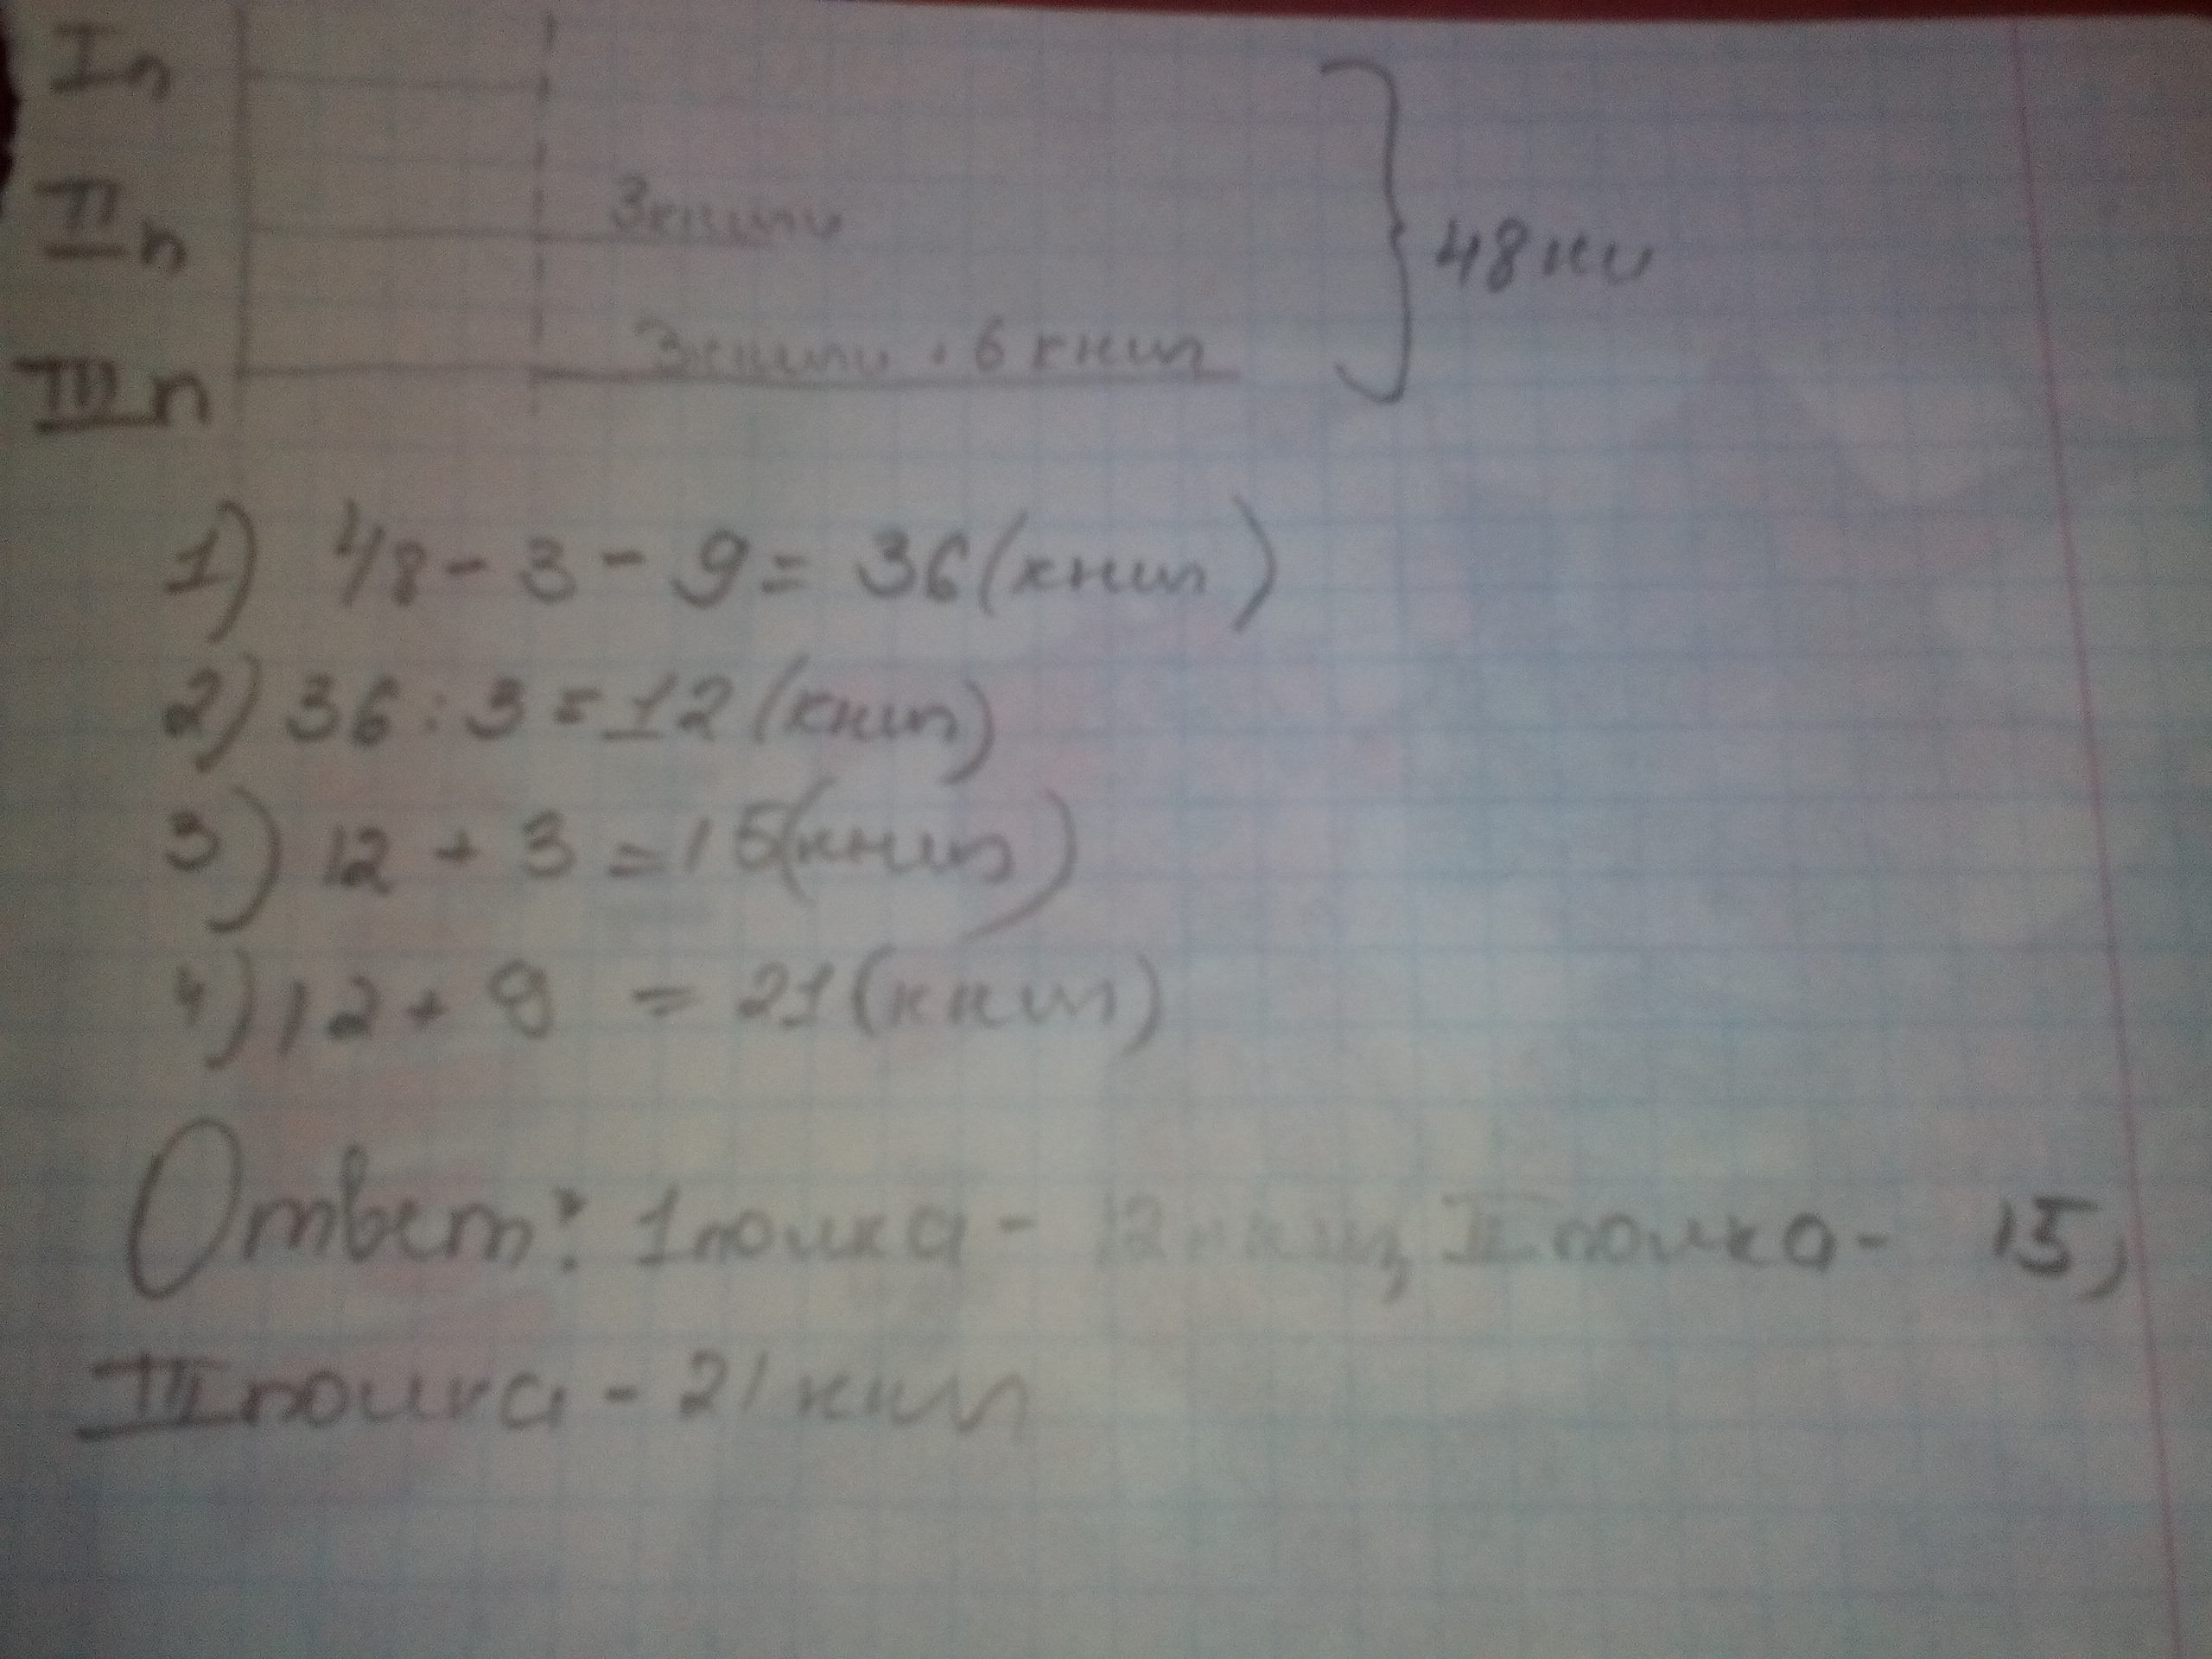 I п
II п 3 книги
48 кн
III п 3 книги + 6 книг
1) 48 - 3 - 9 = 36 (книг)
2) 36 : 3 = 12 (книг)
3) 12 + 3 = 15 (книг)
4) 12 + 9 = 21 (книг)
Ответ: 1 полка - 12 книг, II полка - 15,
III полка - 21 книг